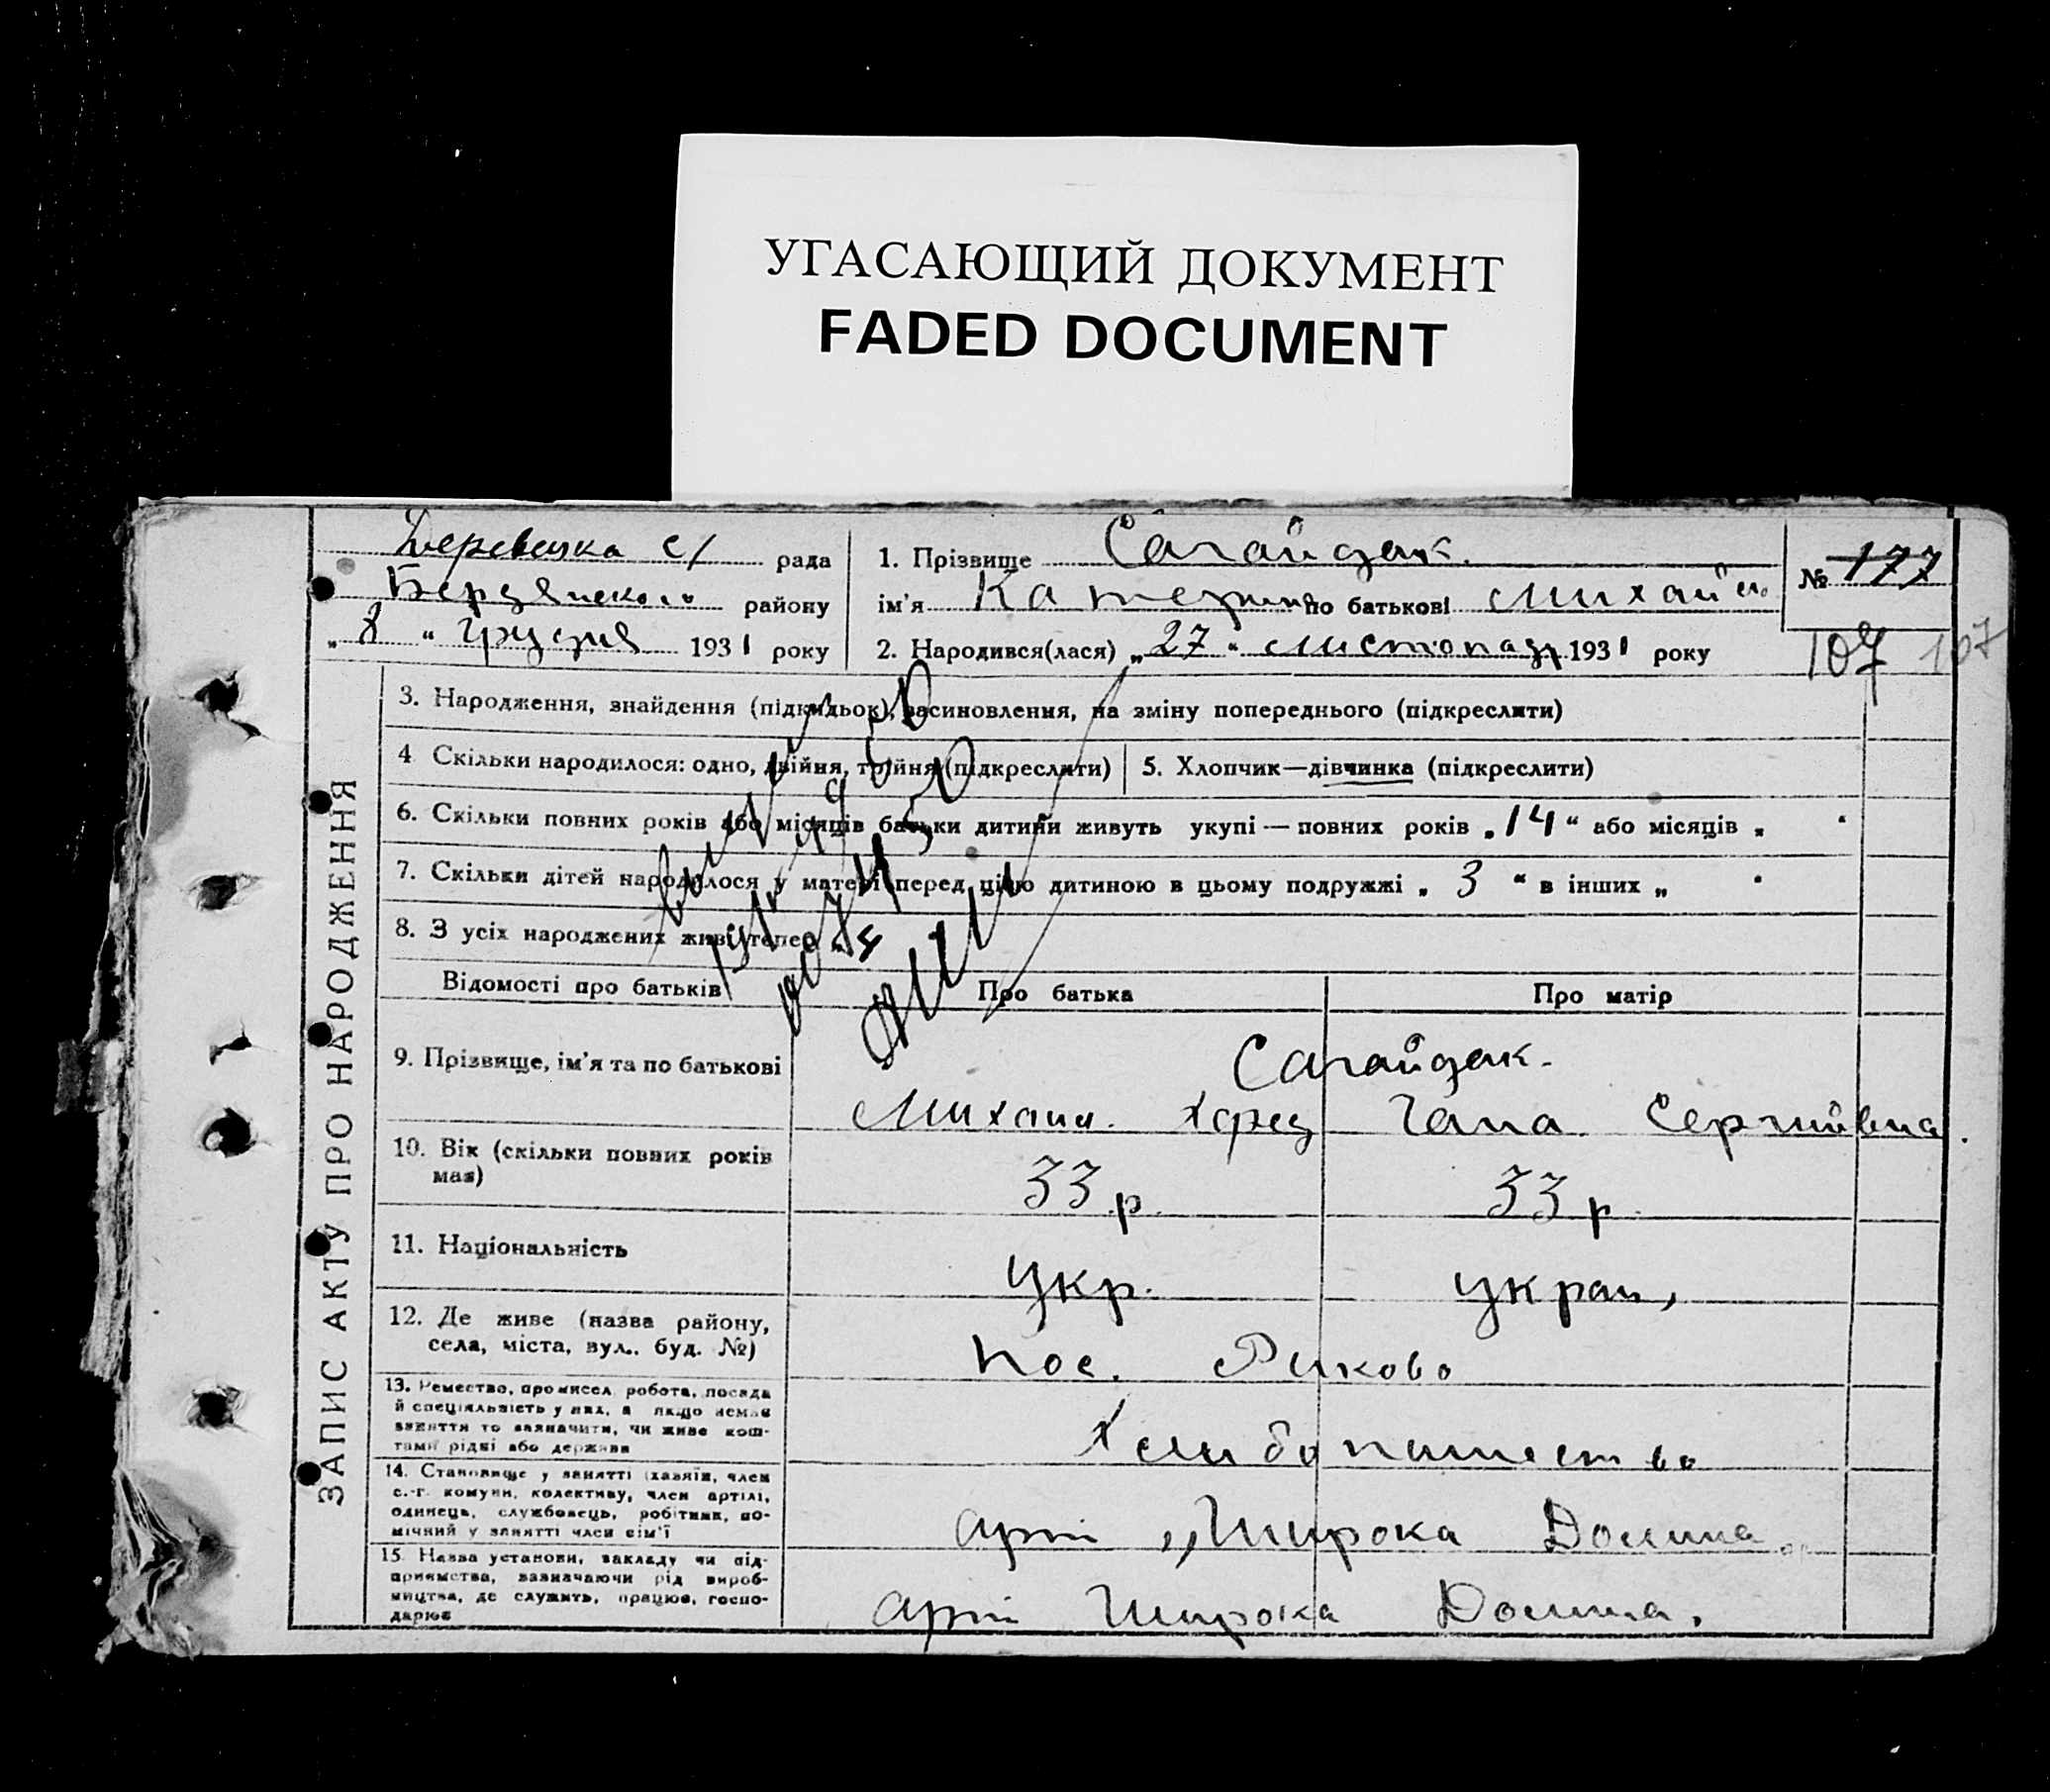 УГАСАЮЩИЙ ДОКУМЕНТ
FADED DOCUMENT
с/ рада
Бердянского району
„ 8 “ грудня 1931 року
1. Прізвище Сагайдак.
ім'я Катерина по батькові Михайл
2. Народився(лася) „27“ листопад 1931 року
№ 177
107 107
ЗАПИС АКТУ ПРО НАРОДЖЕННЯ
3. Народження, знайдення (підкидьок), засиновлення, на зміну попереднього (підкреслити)
4 Скільки народилося: одно, двійня, трійня (підкреслити)
5. Хлопчик—дівчинка (підкреслити)
6. Скільки повних років або місяців батьки дитини живуть укупі — повних років „14“ або місяців „ “
7. Скільки дітей народилося у матері перед цією дитиною в цьому подружжі „ 3 “ в інших „ “
8. З усіх народжених живі тепер „4
Відомості про батьків
Про батька
Про матір
9. Прізвище, ім'я та по батькові
Сагайдак.
Михаил. Гана. Сергиївна.
10. Вік (скільки повних років має)
33 р. 33 р.
11. Національність
Укр. украи,
12. Де живе (назва району, села, міста, вул., буд. №)
пос. Риково
13. Ремество, промисел, робота, посада й спеціяльність у них, а якщо немає заняття то зазначити, чи живе коштами рідні або держави
Хлибопашество
14. Становище у занятті (хазяїн, член с.-г. комуни, колективу, член артілі, одинець, службовець, робітник, помічний у занятті член сім'ї
арті „Широка Долина
15. Назва установи, закладу чи підприємства, зазначаючи рід виробництва, де служить, працює, господарює
арті Широка Долина.